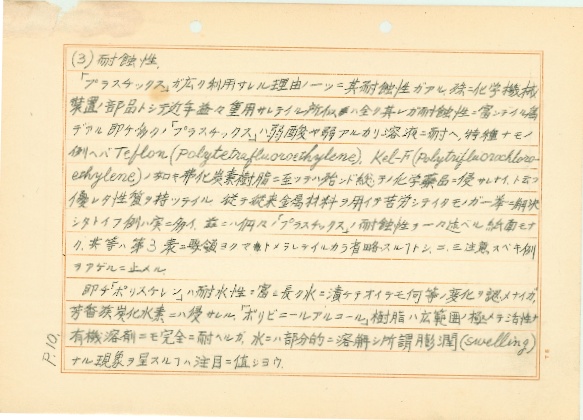 (3) 耐蝕性.
「プラスチックス」ガ広ク利用サレル理由ノ一ツニ其耐蝕性ガアル. 殊ニ化学機械
装置ノ部品トシテ近年益々重用サレテイル所以ハ全ク其レガ耐蝕性ニ富ンテイル為
デアル 即チ多クノ「プラスチックス」ハ弱酸ヤ弱アルカリ溶液ニ耐ヘ, 特種ナモノ
例ヘバ Teflon (polytetrafluoroethylene), Kel-F (polytrifluorochloro-
ethylene) ノ如キ弗化炭素樹脂ニ至ッテハ殆ンド総テノ化学薬品ニ侵サレナイ, トユフ
優レタ性質ヲ持ツテイル 従テ従来金属材料ヲ用イテ苦労シテイタモノガ一挙ニ解決
シタトイフ例ハ実ニ多イ. 茲ニハ個々ノ「プラスチックス」ノ耐蝕性ヲ一々述ベル紙面モナ
ク, 夫等ハ第3表ニ要領ヨクマトメラレテイルカラ省略スルコトトシ, 二, 三注意スベキ例
ヲアゲルニ止メル.
即チ「ポリスチレン」ハ耐水性ニ富ミ長ク水ニ漬ケテオイテモ何等ノ変化ヲ認メナイガ,
芳香族炭化水素ニハ侵サレル.「ポリビニールアルコール」樹脂ハ広範囲ノ極メテ活性ナ
有機溶剤ニモ完全ニ耐ヘルガ, 水ニハ部分的ニ溶解シ所謂膨潤 (swelling)
ナル現象ヲ呈スルコトハ注目ニ値シヨウ.
P.10.